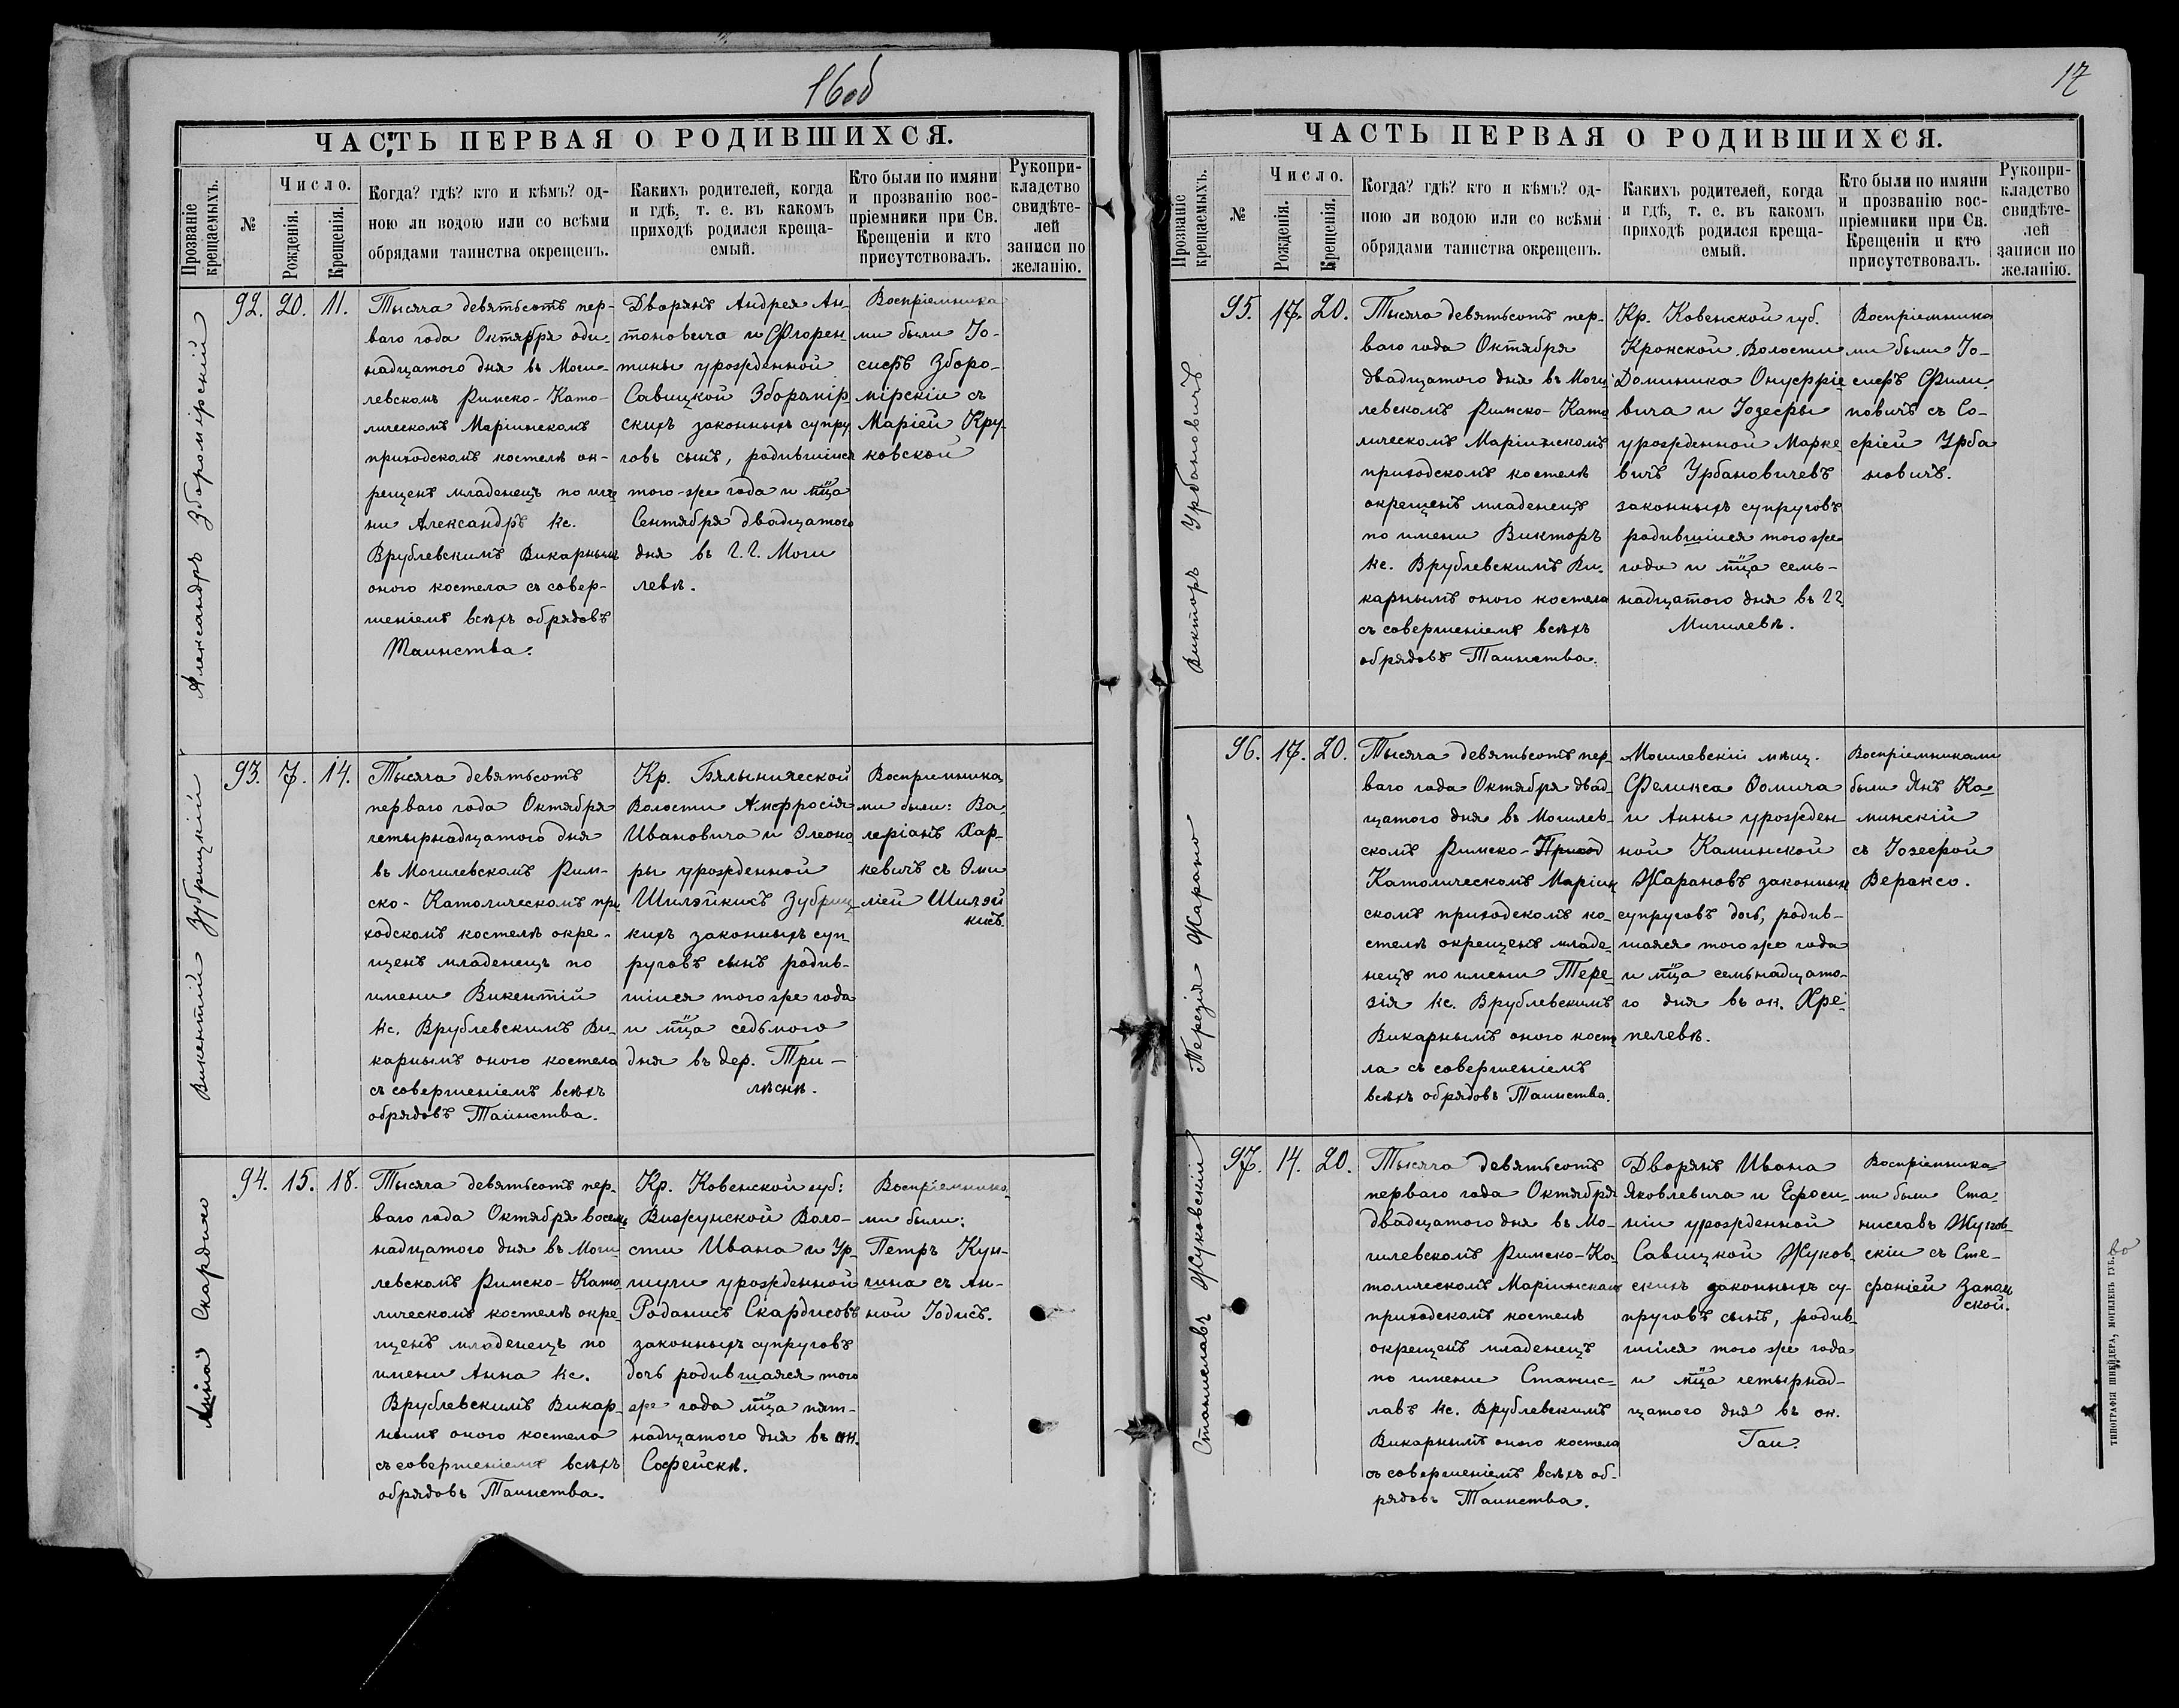 16об
ЧАСТЬ ПЕРВАЯ О РОДИВШИХСЯ.
Прозваніе крещаемыхъ.
№
Число.
Рожденія.
Крещенія.
Когда? гдѣ? кто и кѣмъ? од-
ною ли водою или со всѣми
обрядами таинства окрещенъ.
Какихъ родителей, когда
и гдѣ, т. е. въ какомъ
приходѣ родился креща-
емый.
Кто были по имяни
и прозванію вос-
пріемники при Св.
Крещеніи и кто
присутствовалъ.
Рукопри-
кладство
свидѣте-
лей
записи по
желанію.
Александръ Збромірскій
92. 20. 11.
Тысяча девятьсотъ пер-
ваго года Октября оди-
надцатого дня въ Моги-
левскомъ Римско-Като-
лическомъ Маріинскомъ
приходскомъ костелѣ ок-
рещенъ младенецъ по име
ни Александръ Кс.
Врублевскимъ Викарнымъ
оного костела съ совер-
шеніемъ всѣхъ обрядовъ
Таинства.
Дворянъ Андрея Ан-
тоновича и Флорен-
тины урожденной
Савицкой Збромір-
скихъ законныхъ супру
говъ сынъ, родившійся
того-же года и мца
Сентября двадцатого
дня въ г. г. Моги
левѣ.
Воспріемника
ми были Іо-
сифъ Зборо-
мірскій съ
Маріей Кру-
ковской
Викентій Зубрицкій
93. 7. 14.
Тысяча девятьсотъ
перваго года Октября
четырнадцатого дня
въ Могилевскомъ Рим-
ско-Католическомъ при
ходскомъ костелѣ окре-
щенъ младенецъ по
имени Викентій
Кс. Врублевскимъ Ви-
карнымъ оного костела
съ совершеніемъ всѣхъ
обрядовъ Таинства.
Кр. Бялыничской
Волости Амфросія
Ивановича и Элеоно
ры урожденной
Шилэйкисъ Зубриц-
кихъ законныхъ суп
руговъ сынъ родив-
шійся того же года
и мца седьмого
дня въ дер. Три-
лѣснѣ.
Воспріемника
ми были: Ва-
леріанъ Хар-
кевичъ съ Эми
ліей Шилэй
кисъ.
Анна Скардисъ
94. 15. 18.
Тысяча девятьсотъ пер-
ваго года Октября восемь
надцатого дня въ Моги-
левскомъ Римско-Като
лическомъ костелѣ окре-
щенъ младенецъ по
имени Анна Кс.
Врублевскимъ Викар-
нымъ оного костела
съ совершеніемъ всѣхъ
обрядовъ Таинства.
Кр. Ковенской губ:
Вижунской Воло-
сти Ивана и Ур-
шули урожденной
Роданисъ Скардисовъ
законныхъ супруговъ
дочь родившаяся того
же года мца пят-
надцатого дня въ ок.
Софейскѣ.
Воспріемника-
ми были:
Петръ Кун-
чина съ Ан-
ной Іодисъ.
17
ЧАСТЬ ПЕРВАЯ О РОДИВШИХСЯ.
Прозваніе крещаемыхъ.
№
Число.
Рожденія.
Крещенія.
Когда? гдѣ? кто и кѣмъ? од-
ною ли водою или со всѣми
обрядами таинства окрещенъ.
Какихъ родителей, когда
и гдѣ, т. е. въ какомъ
приходѣ родился креща-
емый.
Кто были по имяни
и прозванію вос-
пріемники при Св.
Крещеніи и кто
присутствовалъ.
Рукопри-
кладство
свидѣте-
лей
записи по
желанію.
Викторъ Урбановичъ
95. 17. 20.
Тысяча девятьсотъ пер-
ваго года Октября
двадцатого дня въ Моги
левскомъ Римско-Като
лическомъ Маріинскомъ
приходскомъ костелѣ
окрещенъ младенецъ
по имени Викторъ
Кс. Врублевскимъ Ви-
карнымъ оного костела
съ совершеніемъ всѣхъ
обрядовъ Таинства.
Кр. Ковенской губ.
Кронской Волости
Доминика Онуфріе
вича и Іозефы
урожденной Марке
вичъ Урбановичевъ
законныхъ супруговъ
родившійся того же
года и мца семь-
надцатого дня въ г. г.
Могилевѣ.
Воспріемника
ми были Іо-
сифъ Фили
повичъ съ Со-
фіей Урба
новичъ.
Терезія Жарано
96. 17. 20.
Тысяча девятьсотъ пер-
ваго года Октября двад-
цатого дня въ Могилев-
скомъ Римско-Приход
Католическомъ Маріин
скомъ приходскомъ ко-
стелѣ окрещенъ младе-
нецъ по имени Тере-
зія Кс. Врублевскимъ
Викарнымъ оного косте
ла съ совершеніемъ
всѣхъ обрядовъ Таинства.
Могилевскій мѣщ.
Феликса Ѳомича
и Анны урожден
ной Каминской
Жарановъ законныхъ
супруговъ дочь, родив-
шаяся того же года
и мца семьнадцато-
го дня въ ок. Хре-
пелевѣ.
Воспріемниками
были Янъ Ка-
минскій
съ Іозефой
Вераксо.
Станиславъ Жуковскій
97. 14. 20.
Тысяча девятьсотъ
перваго года Октября
двадцатого дня въ Мо-
гилевскомъ Римско-Ка-
толическомъ Маріинскомъ
приходскомъ костелѣ
окрещенъ младенецъ
по имени Станис-
лавъ Кс. Врублевскимъ
Викарнымъ оного костела
съ совершеніемъ всѣхъ об-
рядовъ Таинства.
Дворянъ Ивана
Яковлевича и Ефроси-
ніи урожденной
Савицкой Жуков-
скихъ законныхъ су-
пруговъ сынъ, родив-
шійся того же года
и мца четырнад-
цатого дня въ ок.
Гаи.
Воспріемника-
ми были Ста-
ниславъ Жуков-
скій съ Сте-
фаніей
ской.
ТИПОГРАФІЯ ШНЕЙДЕРА, МОГИЛЕВЪ ГУБ.